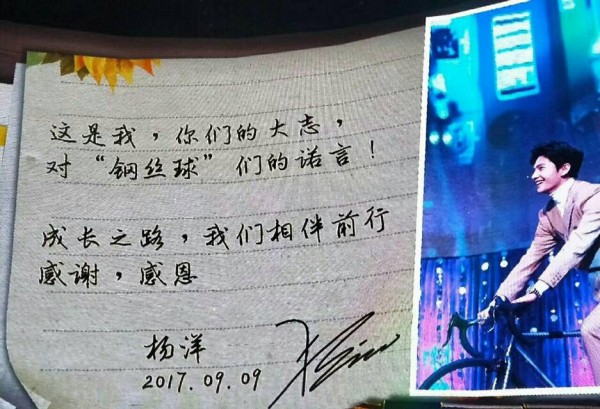 这是我，你们的大志，
对“钢丝球”们的诺言！
成长之路，我们相伴前行
感谢，感恩
杨洋
2017.09.09